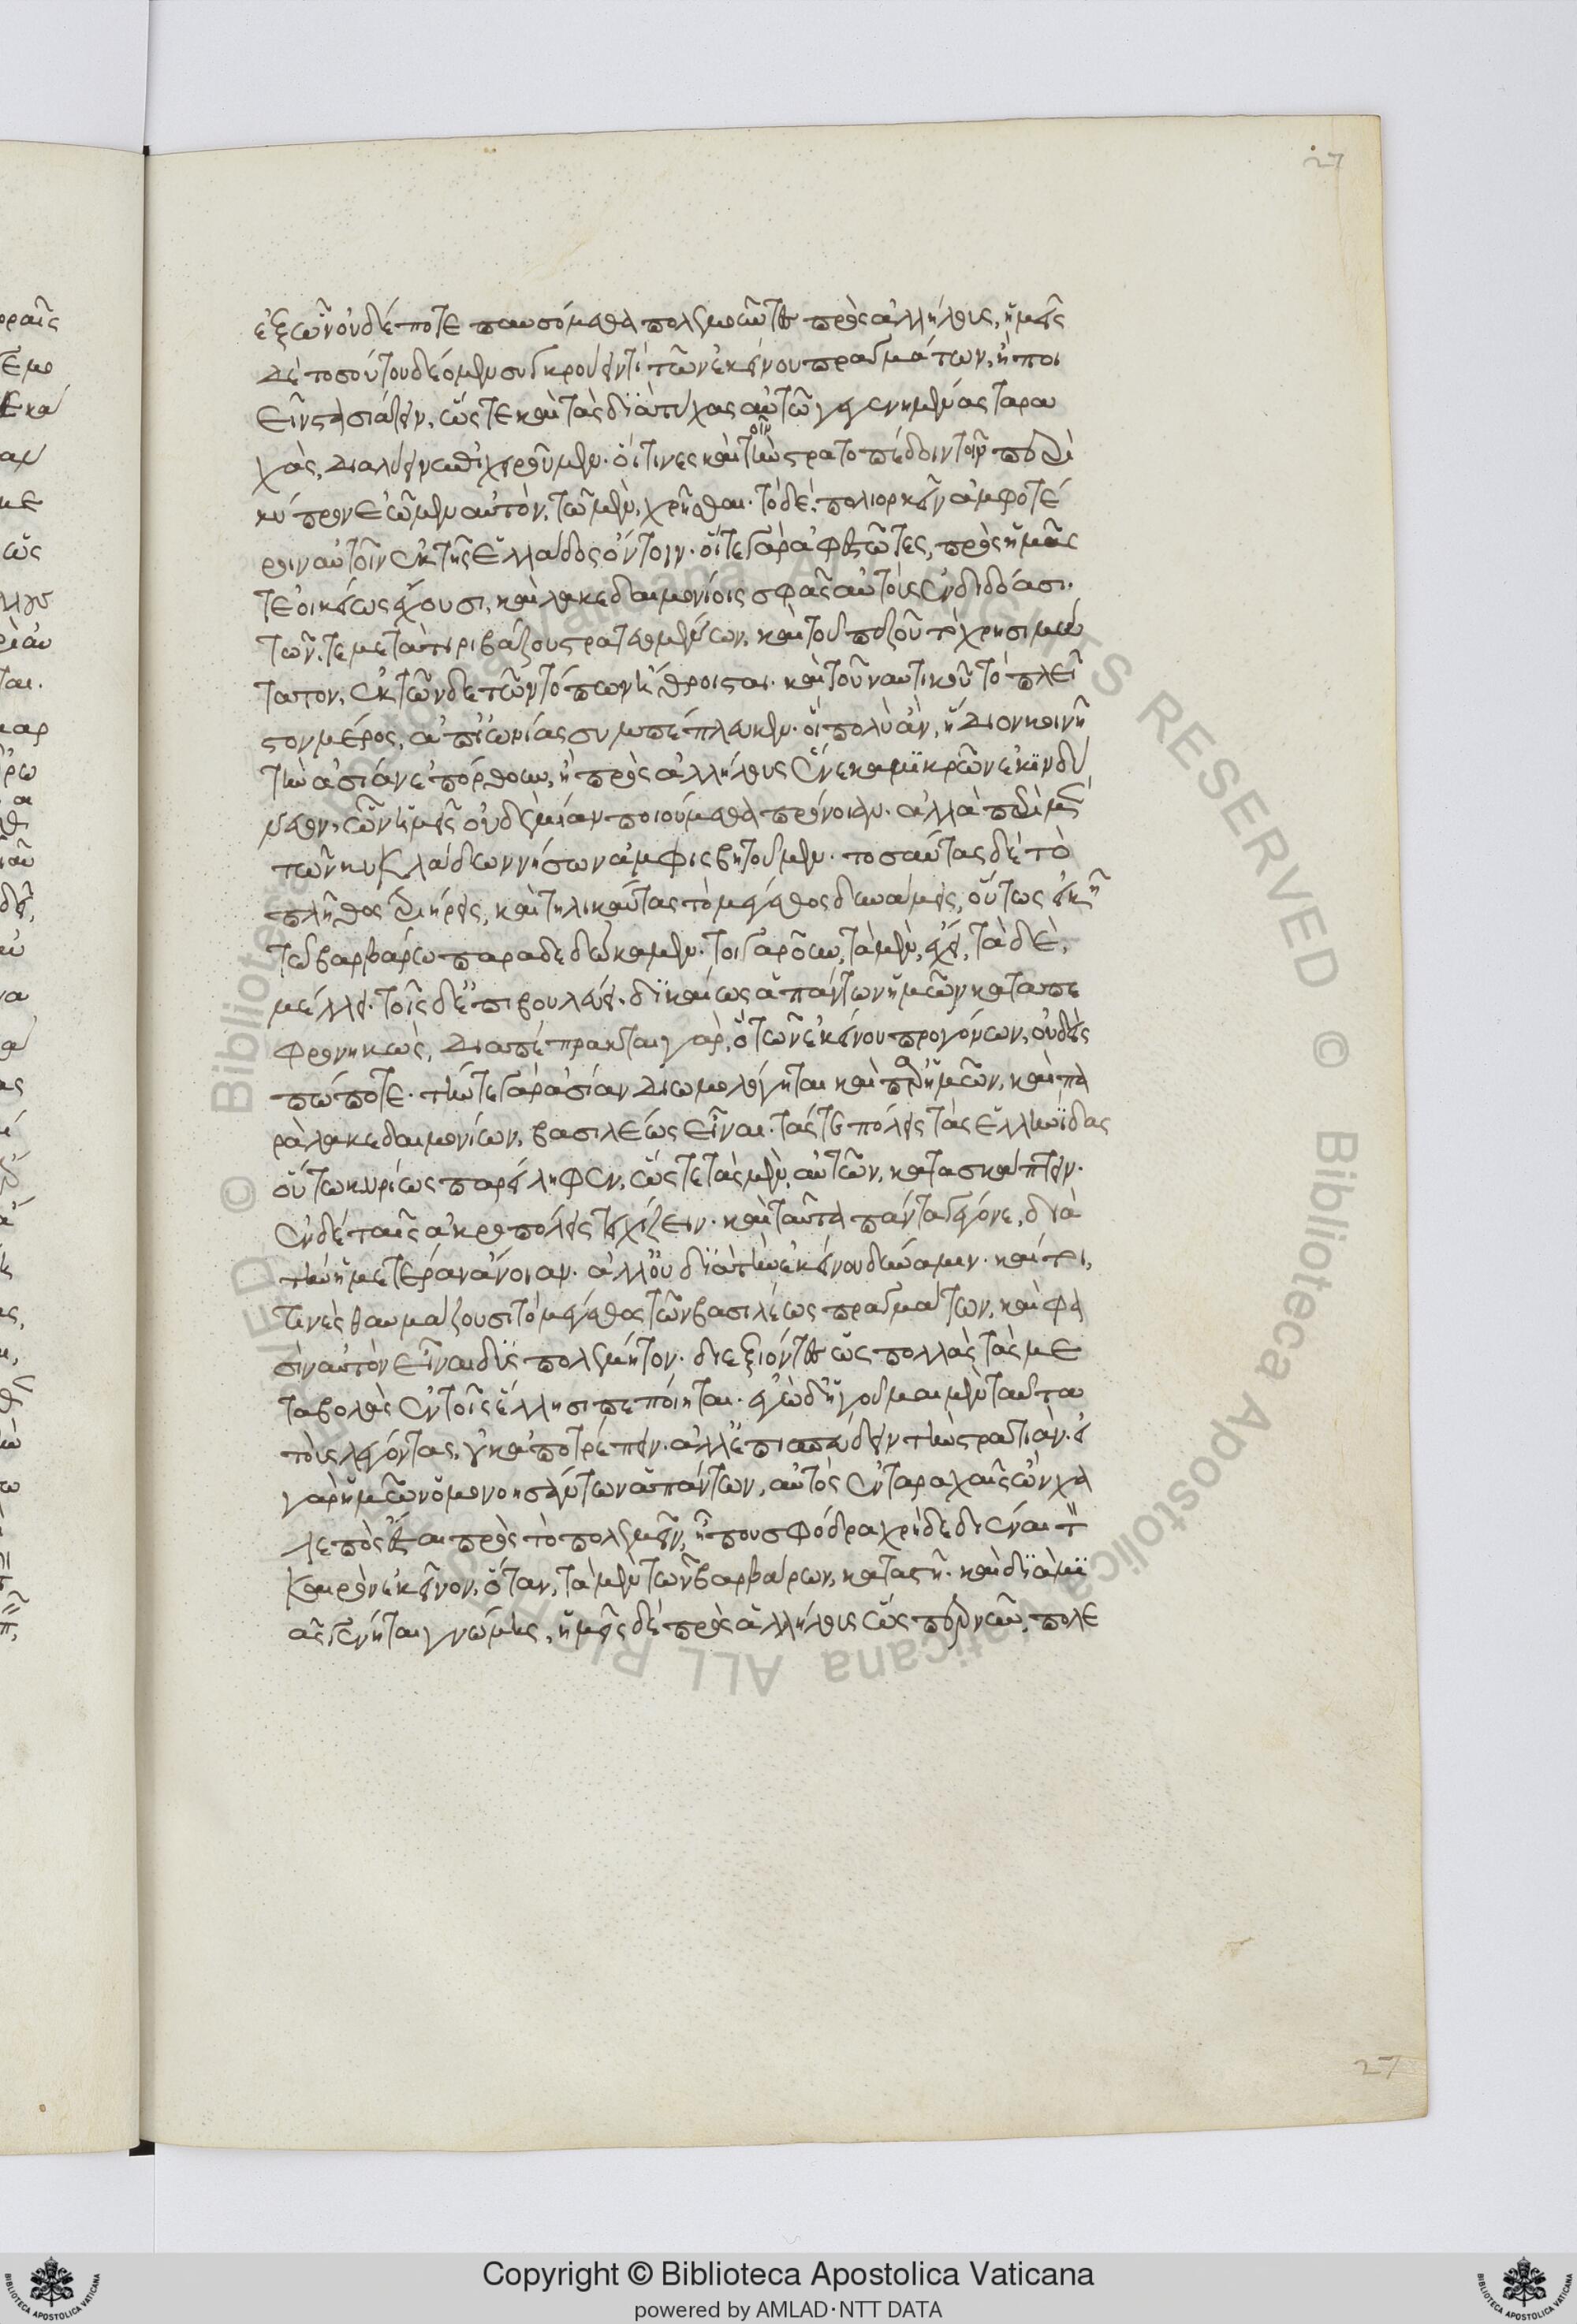 ἐξ ὧν οὐδέποτε παυσόμεθα πολεμοῦντες πρὸς ἀλλήλους, ἡμεῖς
δὲ τοσούτου δέομεν συγκρούειν τὶ τῶν ἐκείνου πραγμάτων, ἢ ποι
εῖν στασιάζειν, ὥς τε καὶ τὰς διὰ τύχας αὐτῶ γεγενημένας ταρα
χὰς, διαλύειν ἐπιχειροῦμεν. οἵ τινες καὶ τὼ στρατοπέδοιν τοῖν περὶ
κύπρον ἐῶμεν αὐτὸν, τῶ μὲν, χρῆσθαι. τὸ δὲ, πολιορκεῖν ἀμφοτέ
ροιν αὐτοῖν ἐκ τῆς ἑλλάδος ὄντοιν. οἵ τε γὰρ ἀφεστῶτες, πρὸς ἡμᾶς
τε οἰκείως ἔχουσι, καὶ λακεδαιμονίοις σφᾶς αὐτοὺς ἐνδιδόασι.
τῶν τε μετὰ τιριβάζου στρατευομένων, καὶ τοῦ πεζοῦ τὸ χρησιμώ
τατον, ἐκ τῶνδε τῶν τόπων ἤθροισται. καὶ τοῦ ναυτικοῦ τὸ πλεῖ
στον μέρος, ἀπ ἰωνίας συμπέπλευκεν. οἳ πολὺ ἂν, ἥδιον κοινῆ
τὴν ἀσίαν ἐπόρθουν, ἢ πρὸς ἀλλήλους ἕνεκα μϊκρῶν ἐκινδύ
νευον, ὧν ἡμεῖς οὐδεμίαν ποιούμεθα πρόνοιαν. ἀλλὰ περὶ μὲν
τῶν κυκλάδων νήσων ἀμφισβητοῦμεν. τοσαύτας δὲ τὸ
πλῆθος τριήρεις, καὶ τηλικαύτας τὸ μέγεθος δυνάμεις, οὕτως εἰκῆ
τῶ βαρβάρω παραδεδώκαμεν. τοιγαροῦν, τὰ μὲν, ἔχει, τὰ δὲ,
μέλλει. τοῖς δ ἐπιβουλεύει. δικαίως ἁπάντων ἡμῶν καταπε
φρονηκὼς, διαπέπρακται γὰρ, ὃ τῶν ἐκείνου προγόνων, οὐδεὶς
πώποτε. τήν τε γὰρ ἀσίαν διωμολόγηται καὶ παρ ἡμῶν, καὶ πα
ρὰ λακεδαιμονίων, βασιλέως εἶναι. τάς τε πόλεις τὰς ἑλληνίδας
οὕτω κυρίως παρείληφεν, ὥς τε τὰς μὲν, αὐτῶν, κατασκάπτειν.
ἐν δὲ ταῖς ἀκροπόλεις τειχίζειν. καὶ ταῦτα πάντα γέγονε, διὰ
τὴν ἡμετέραν ἄνοιαν. ἀλλ οὐ διὰ τὴν ἐκείνου δύναμιν. καί τοι,
τινὲς θαυμάζουσι τὸ μέγεθος τῶν βασιλέως πραγμάτων, καὶ φα
σὶν αὐτὸν εἶναι δυσπολέμητον. διεξιόντες ὡς πολλὰς τὰς με
ταβολὰς ἐν τοῖς ἕλλησι πεποίηται. ἐγὼ δ ἡγοῦμαι μὲν ταῦτα
τοὺς λέγοντας, οὐκ ἀποτρέπειν. ἀλλ ἐπισπεύδειν τὴν στρατιάν. εἰ
γὰρ ἡμῶν ὁμονοησάντων ἁπάντων, αὐτὸς ἐν ταραχαῖς ὢν χα
λεπὸς ἔσται πρὸς τὸ πολεμεῖν, ἦ που σφόδρα χρὴ δεδιέναι τὸν
καιρὸν ἐκεῖνον, ὅταν, τὰ μὲν τῶν βαρβάρων, καταστῆ. καὶ διὰ μι
ᾶς γένηται γνώμης, ἡμεῖς δὲ πρὸς ἀλλήλους ὥσπερ νῦν, πολε
27
27
Copyright © Biblioteca Apostolica Vaticana
powered by AMLAD·NTT DATA